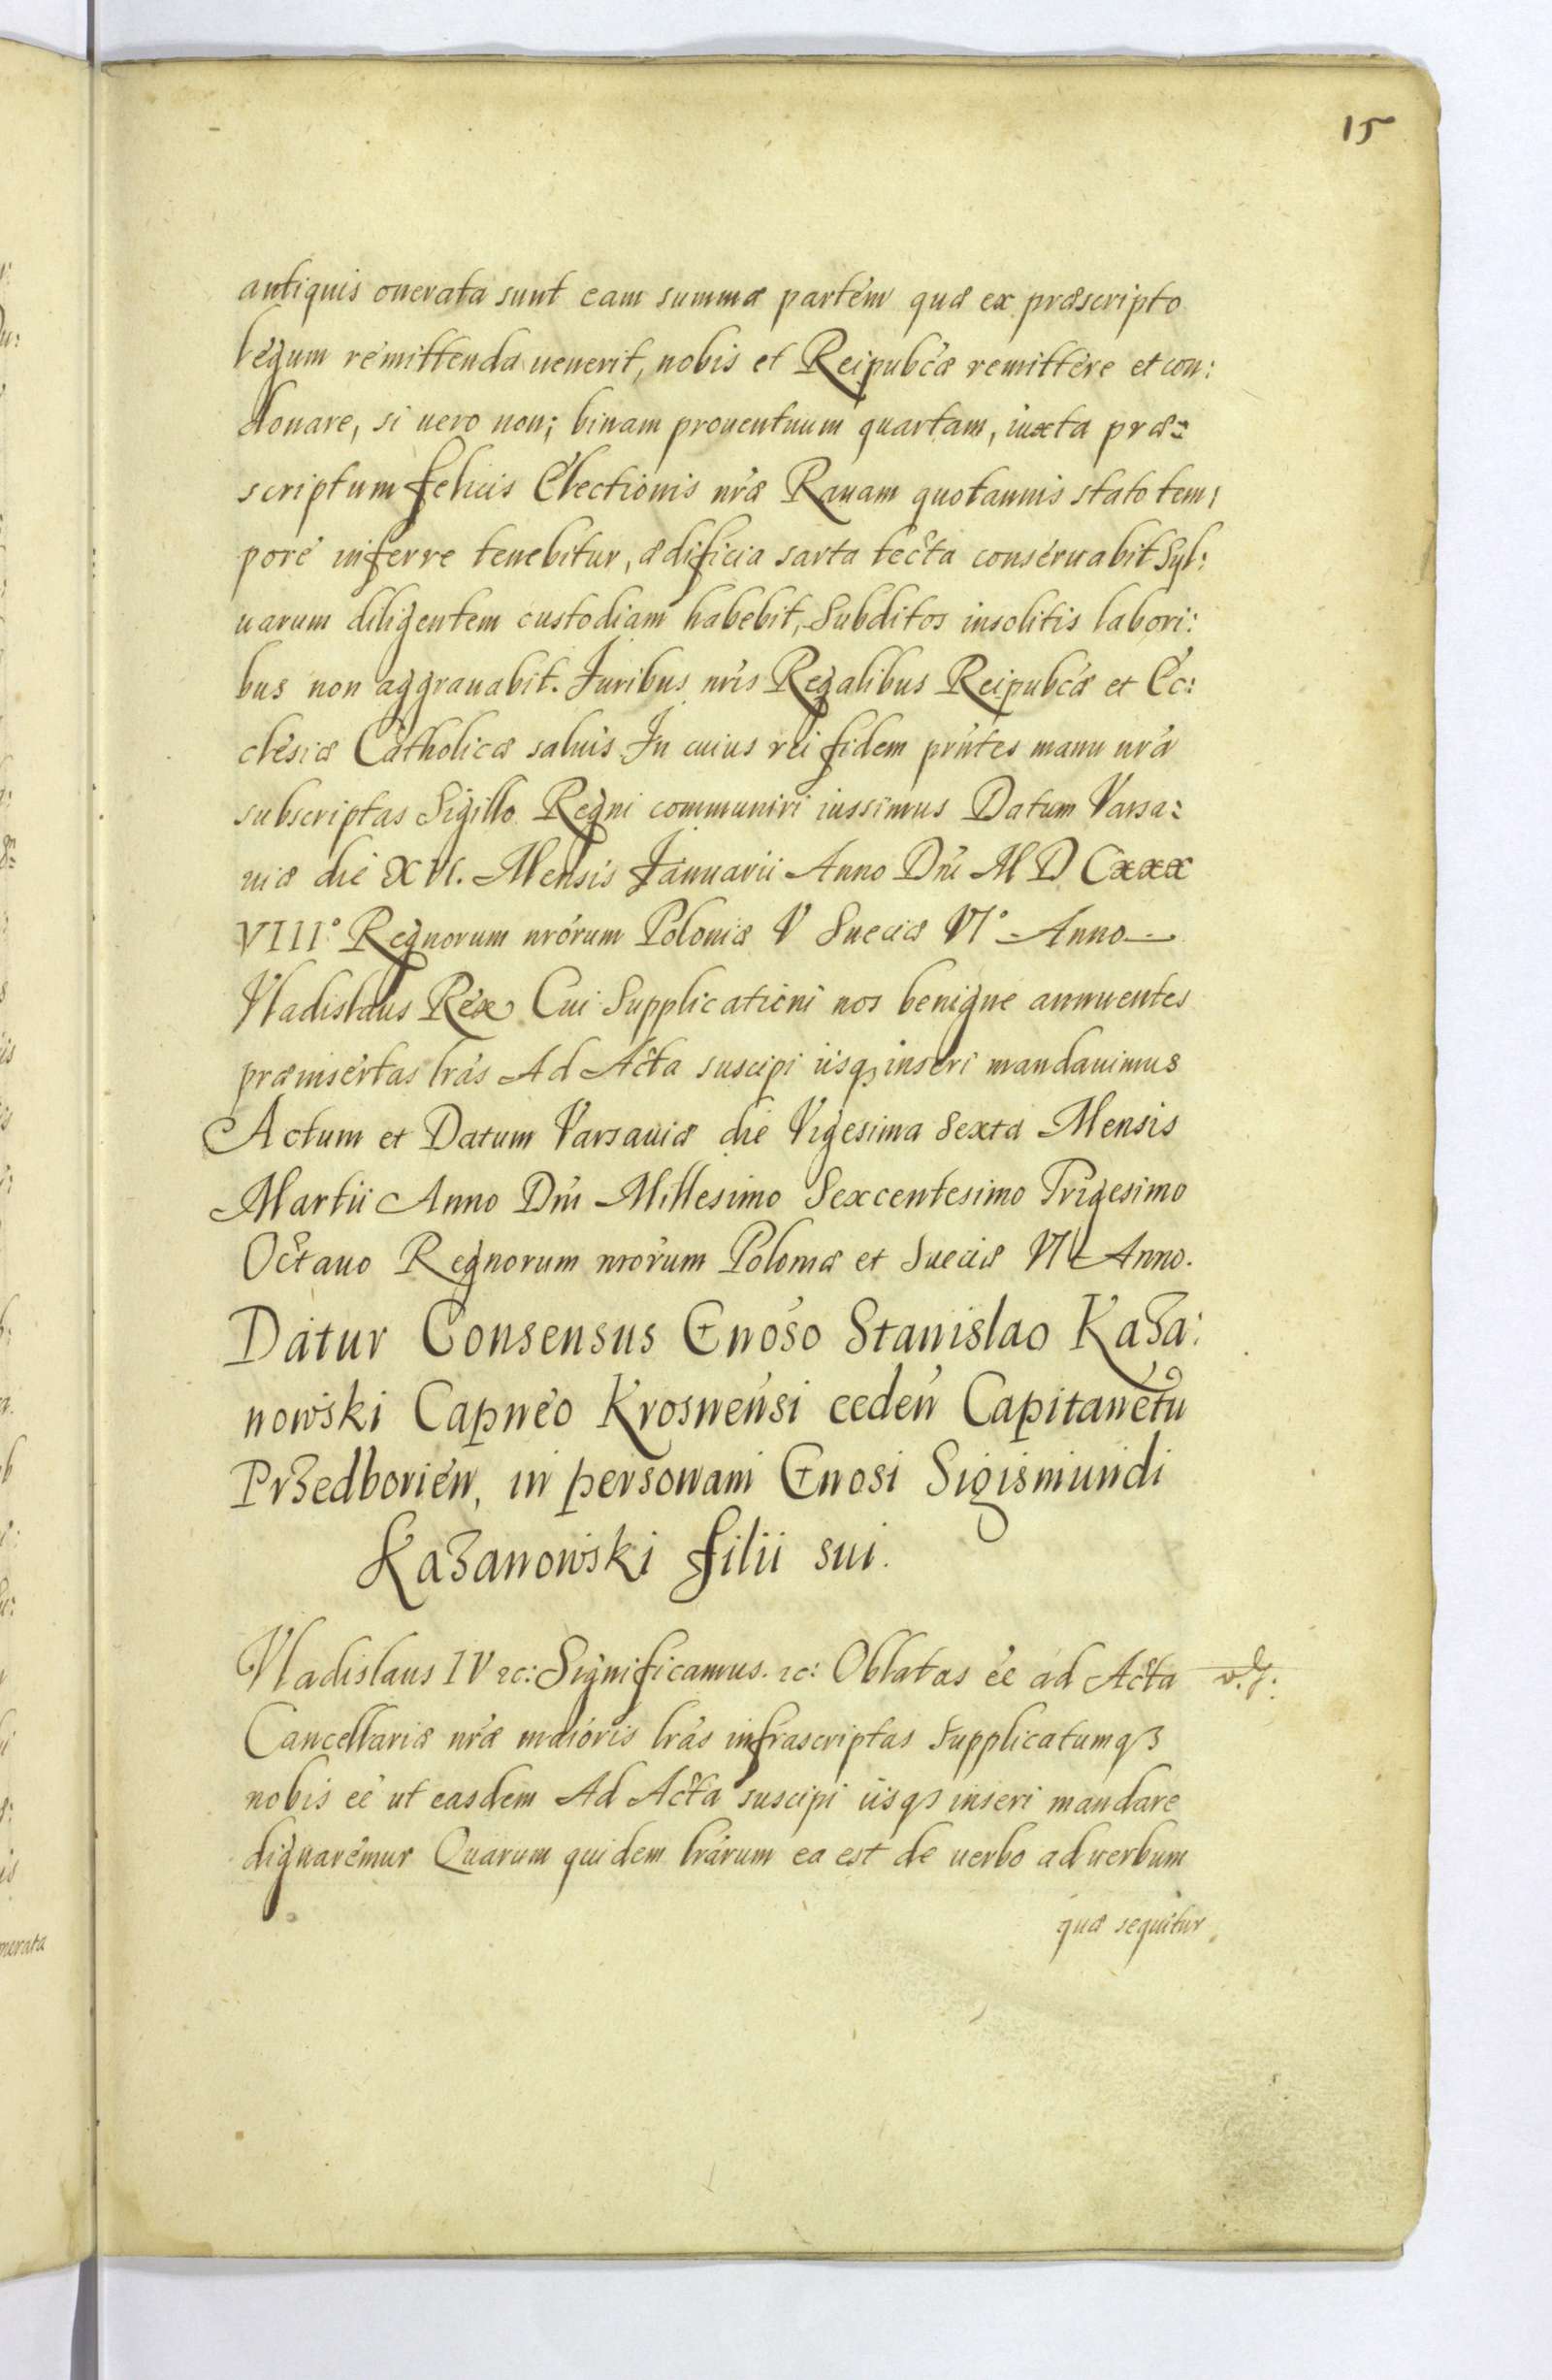 15
antiquis onerata sunt eam summæ partem quæ ex præscripto
legum remittenda uenerit, nobis et Reipubcæ remittere et con:
donare, si uero non; binam prouentuum quartam, iuxta præ=
scriptum felicis Electionis nræ Rauam quotannis stato tem:
pore inferre tenebitur, ædificia sarta tecta conseruabit Syl:
uarum diligentem custodiam habebit, Subditos insolitis labori:
bus non aggrauabit. Juribus nris Regalibus Reipubcæ et Ec:
clesiæ Catholicæ saluis. In cuius rei fidem pntes manu nra
subscriptas Sigillo Regni communiri iussimus Datum Varsa=
uiæ die XVI. Mensis Januarii Anno Dni M D Cxxx
VIII° Regnorum nrorum Poloniæ V Sueciæ VI° Anno
Vladislaus Rex Cui Supplicationi nos benigne annuentes
præinsertas lras Ad Acta suscipi iisq3 inseri mandauimus
Actum et Datum Varsauiæ die Vigesima Sexta Mensis
Martii Anno Dni Millesimo Sexcentesimo Trigesimo
Octauo Regnorum nrorum Poloniæ et Sueciæ VI Anno.
Datur Consensus Gnoso Stanislao Kaza:
nowski Capneo Krosnensi ceden Capitanetu
Przedborien, in personam Gnosi Sigismundi
Kazanowski filii sui.
Vladislaus IV rc: Significamus. rc: Oblatas ee ad Acta
Cancellariæ nræ maioris lras infrascriptas Supplicatumq3
nobis ee ut easdem Ad Acta suscipi iisq3 inseri mandare
dignaremur Quarum quidem lrarum ea est de uerbo ad uerbum
quæ sequitur
nerata